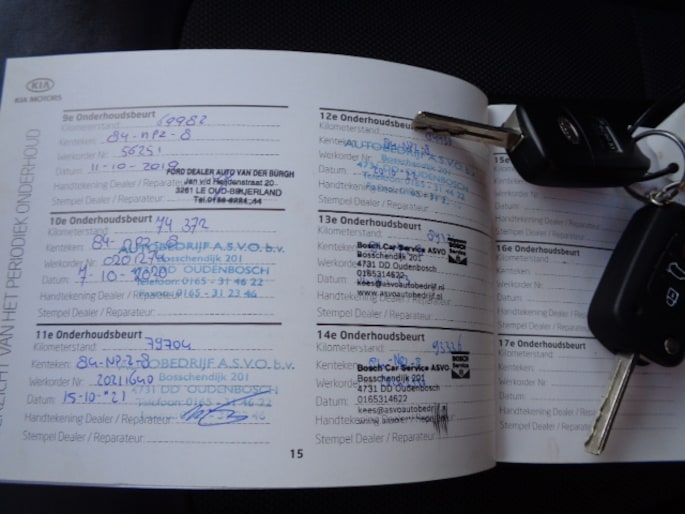 KIA
KIA MOTORS
VAN HET PERIODIEK ONDERHOUD
9e Onderhoudsbeurt
Kilometerstand: 69982
Kenteken: 84-NPZ-8
Werkorder Nr.: 56251
Datum: 11-10-2019
FORD DEALER AUTO VAN DER BURGH
Jan v/d Heijdenstraat 20
3261 LE OUD-BEIJERLAND
Handtekening Dealer / Reparateur:
Stempel Dealer / Reparateur:
10e Onderhoudsbeurt
Kilometerstand: 74 372
Kenteken: 84-NPZ-8
Werkorder Nr.:
Datum: 7-10-2020
AUTOBEDRIJF A.S.V.O. b.v.
Bosschendijk 201
4731 DD OUDENBOSCH
Telefoon: 0165 - 31 46 22
Telefax: 0165 - 31 23 46
Handtekening Dealer / Reparateur:
Stempel Dealer / Reparateur:
11e Onderhoudsbeurt
Kilometerstand: 79704
Kenteken: 84-NPZ-8
Werkorder Nr.: 20211640
Datum: 15-10-'21
AUTOBEDRIJF A.S.V.O. b.v.
Bosschendijk 201
4731 DD OUDENBOSCH
Telefoon: 0165 - 31 46 22
Handtekening Dealer / Reparateur:
Stempel Dealer / Reparateur:
15
12e Onderhoudsbeurt
Kilometerstand:
Kenteken:
Werkorder Nr.:
Datum:
AUTOBEDRIJF A.S.V.O. b.v.
Bosschendijk 201
4731 DD OUDENBOSCH
Handtekening Dealer / Reparateur:
Stempel Dealer / Reparateur:
13e Onderhoudsbeurt
Kilometerstand:
Kenteken:
Werkorder Nr.:
Datum:
Bosch Car Service ASVO
Bosschendijk 201
4731 DD Oudenbosch
0165314622
kees@asvoautobedrijf.nl
www.asvoautobedrijf.nl
BOSCH
Service
Handtekening Dealer
Stempel Dealer / Reparateur:
14e Onderhoudsbeurt
Kilometerstand:
Kenteken:
Werkorder
Datum:
Bosch Car Service ASVO
Bosschendijk 201
4731 DD Oudenbosch
0165314622
kees@asvoautobedrijf
BOSCH
Service
Handtekening
Stempel Dealer / Reparateur:
15e
Kenteken:
Werkorder
Datum:
Handtekening
Stempel Dealer
16e Onderhoudsbeurt
Kilometerstand:
Kenteken:
Werkorder Nr.:
Datum:
Handtekening Dealer
Stempel Dealer / Rep
17e Onderhoudsbeurt
Kilometerstand:
Kenteken:
Werkorder Nr.:
Datum:
Handtekening Dealer
Stempel Dealer / Reparateur: